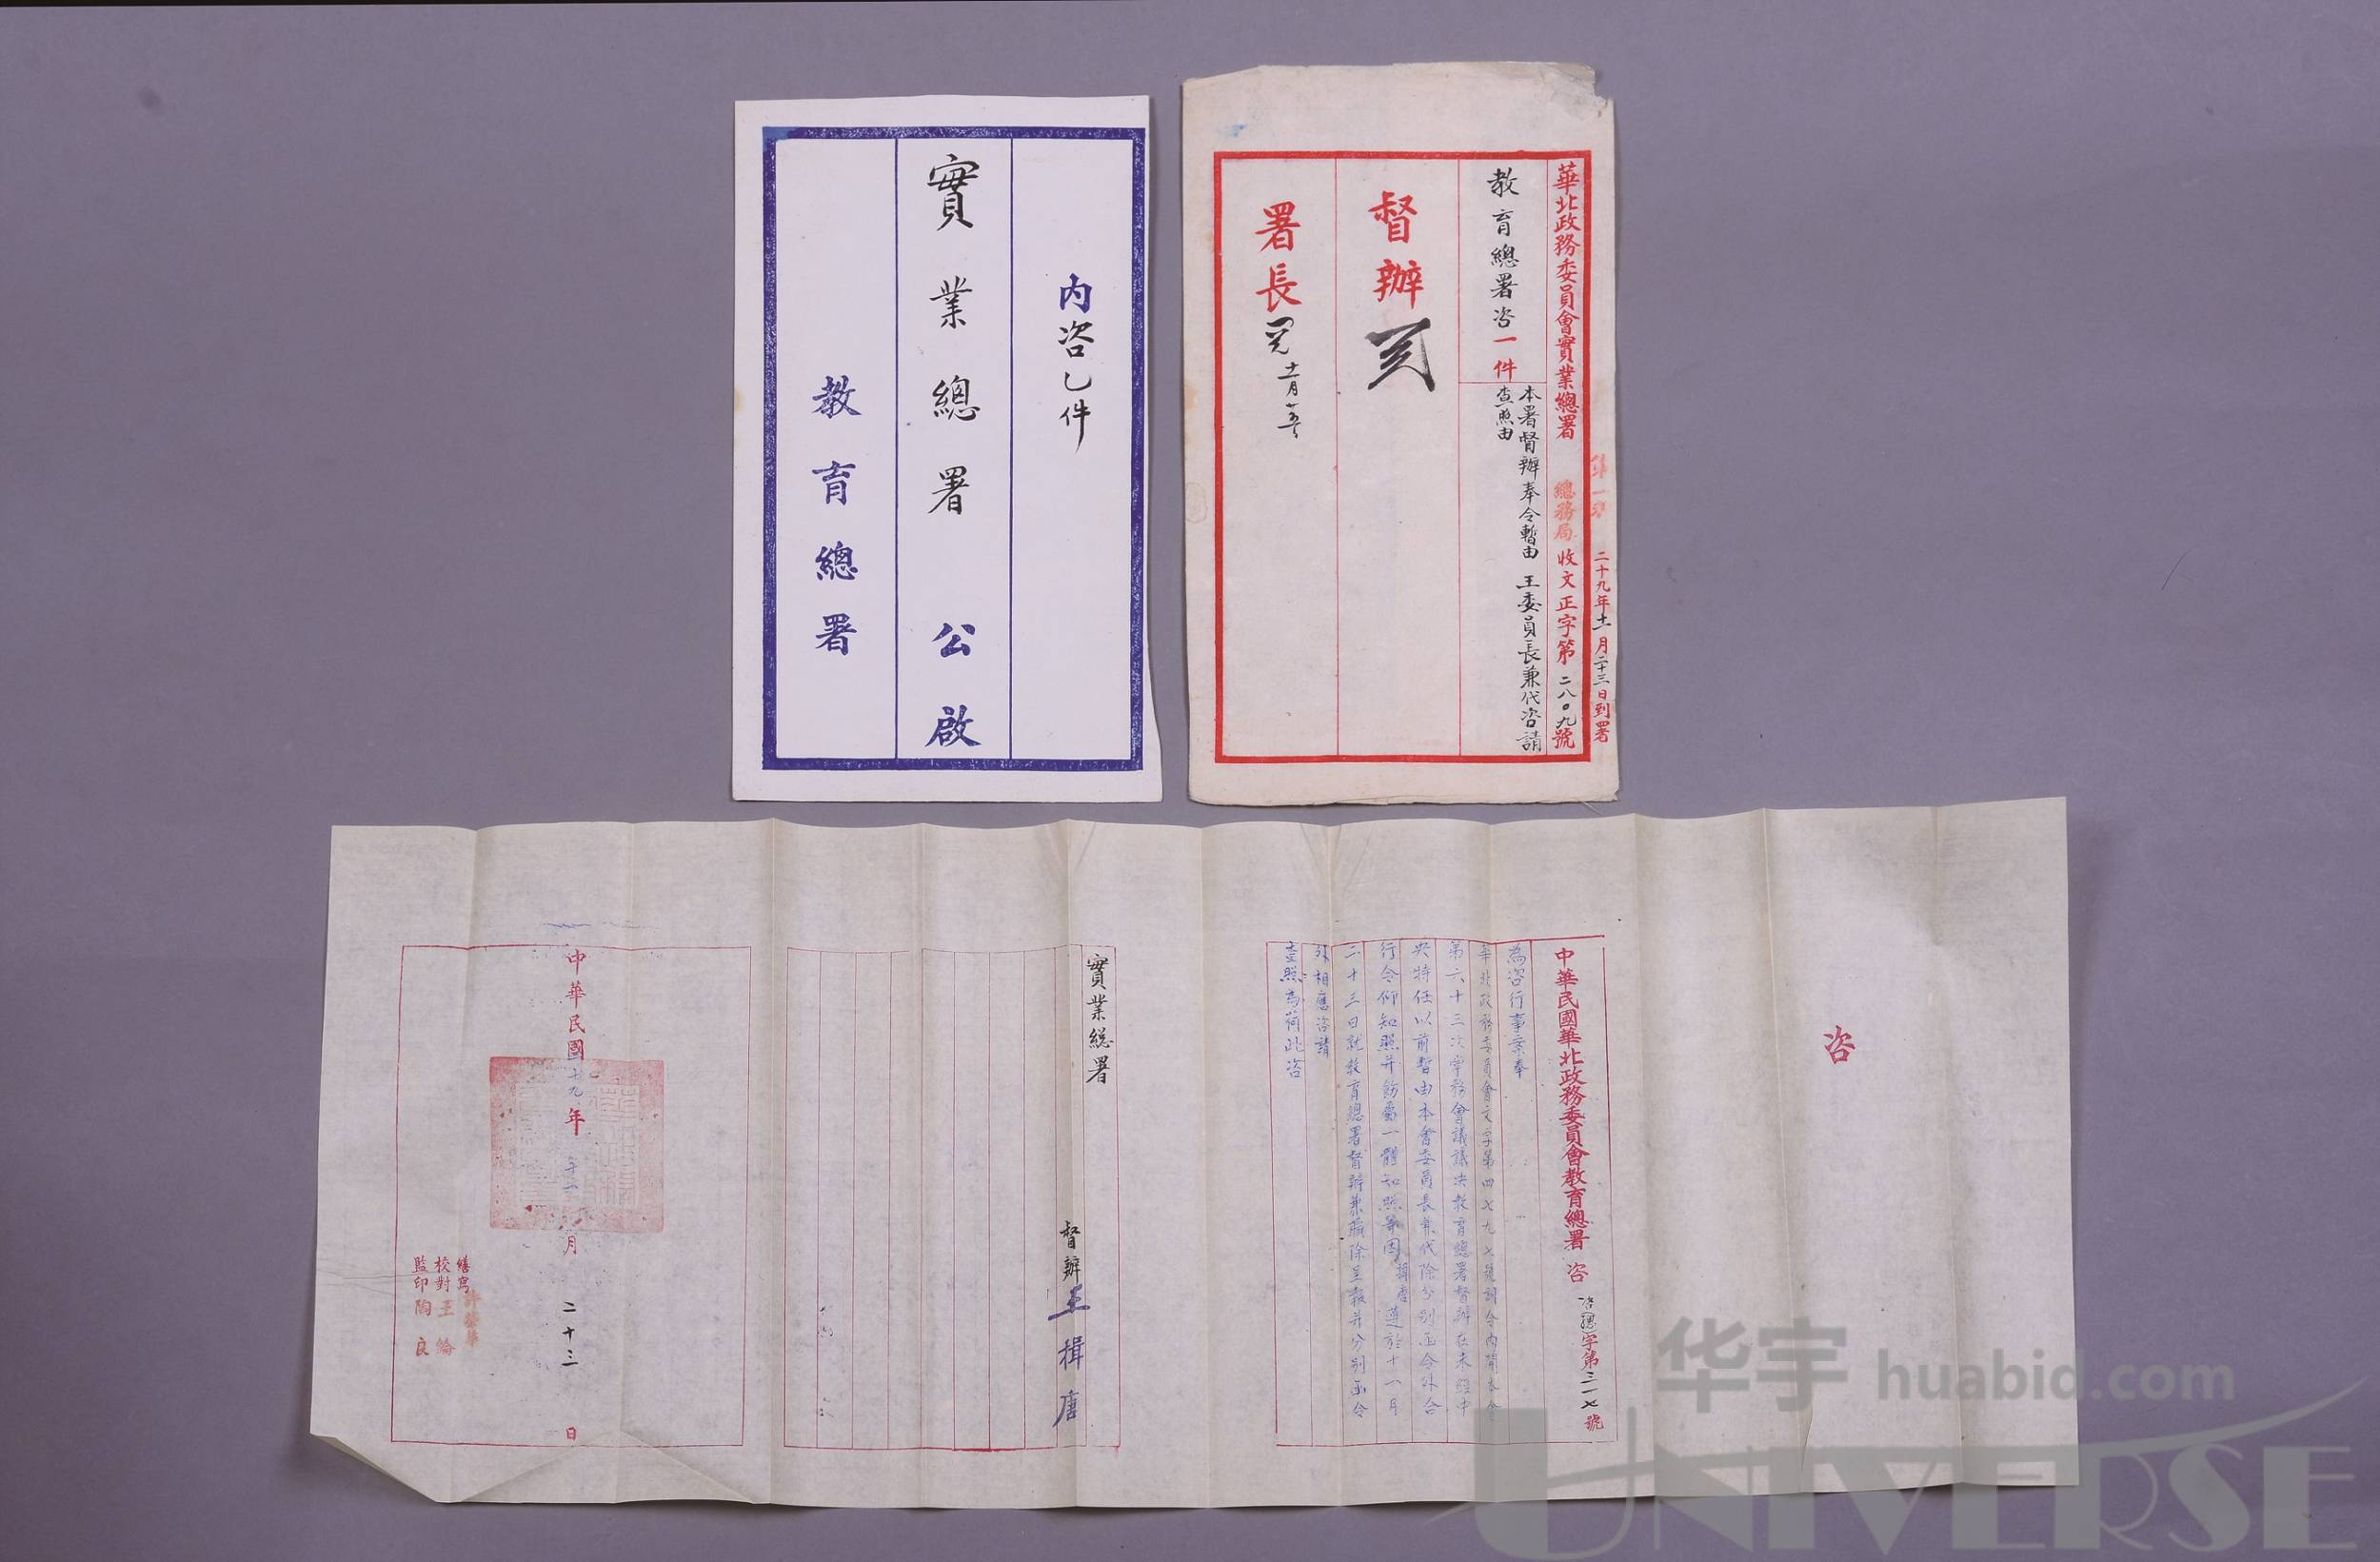 內咨乙件
實業總署 公啟
教育總署
第一科
二十九年十一月二十三日到署
華北政務委員會實業總署 總務局 收文正字第二八〇九號
教育總署咨一件
本署督辦奉令暫由 王委員長兼代咨請
查照由
督辦
署長 十一月廿五
咨
中華民國華北政務委員會教育總署 咨 咨(總)字第三一七號
為咨行事案奉
華北政務委員會文字第四七九七號訓令內開本會
第六十三次常務會議議決教育總署督辦在未經中
央特任以前暫由本會委員長兼代除分別函令外合
行令仰知照并飭屬一體知照等因揖唐遵於十一月
二十三日就教育總署督辦兼職除呈報并分別函令
外相應咨請
查照為荷此咨
實業總署
督辦王揖唐
中華民國廿九年十一月二十三日
繕寫
校對王綸
監印陶良
华宇 huabid.com
UNIVERSE